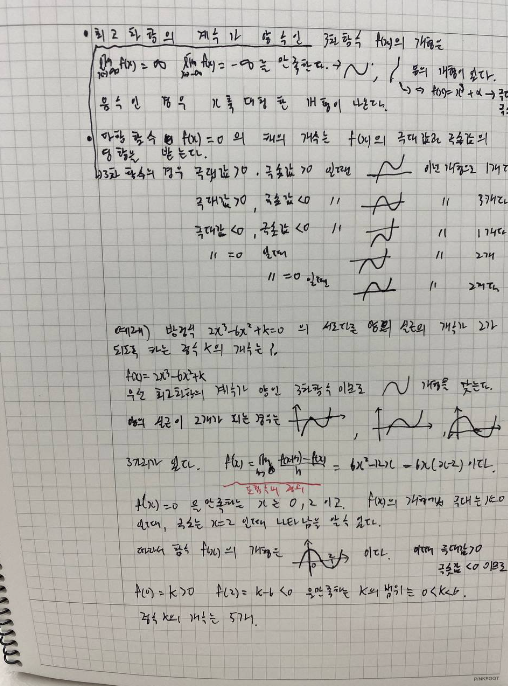 • 최고차항의 계수가 양수인 3차함수 f(x)의 개형은
lim x→∞ f(x) = ∞ lim x→-∞ f(x) = -∞을 만족한다. → 등의 개형이 있다.
↳ f(x)=x³+α →
음수인 경우 x축 대칭한 개형이 나온다.
• 다항함수 f(x)=0의 해의 개수는 f(x)의 극댓값과 극솟값의
영향을 받는다.
3차함수의 경우 극대값>0, 극소값>0 일때 이런 개형으로 1개다
극대값>0, 극소값<0 〃 〃 3개다
극대값<0, 극소값<0 〃 〃 1개다
〃 =0 일때 〃 2개
〃 =0 일때 〃 2개다
예제) 방정식 2x³-6x²+k=0 의 서로다른 양의 실근의 개수가 2가
되도록 하는 정수 k의 개수는?
f(x)=2x³-6x²+k
우선 최고차항의 계수가 양인 3차함수 이므로 개형을 갖는다.
양의 실근이 2개가 되는 경우는 , ,
3가지가 있다. f'(x)=lim h→0 f(x+h)-f(x)/h = 6x²-12x = 6x(x-2) 이다.
도함수의 정의
f'(x)=0 을 만족하는 x는 0, 2 이고 f(x)의 개형에서 극대는 x=0
일때, 극소는 x=2 일때 나타남을 알 수 있다.
따라서 함수 f(x)의 개형은 이다. 이때 극대값>0
극솟값<0 이므로
f(0)=k>0 f(2)=k-8<0 을 만족하는 k의 범위는
정수 k의 개수는